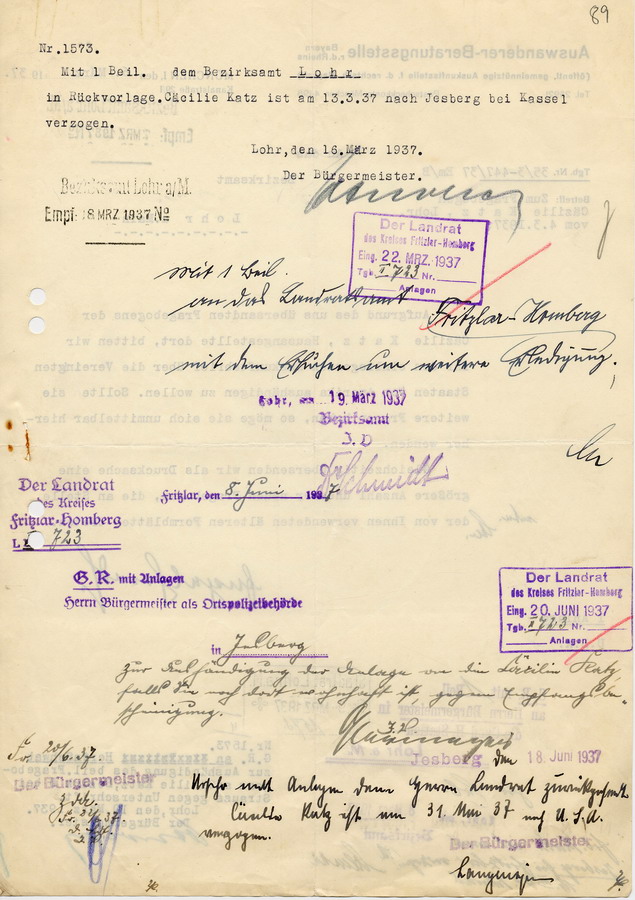 89
Nr.1573.
Mit 1 Beil. dem Bezirksamt Lohr
in Rückvorlage.Cäcilie Katz ist am 13.3.37 nach Jesberg bei Kassel
verzogen.
Lohr,den 16.März 1937.
Der Bürgermeister.
Bezirksamt Lohr a/M.
Empf. 18 MRZ 1937 No
Der Landrat
des Kreises Fritzlar-Homberg
Eing. 22. MRZ. 1937
Tgb. II 723 Nr.
Anlagen
Mit 1 Beil.
an das Landratsamt
Fritzlar-Homberg
mit dem Ersuchen um weitere Erledigung.
Lohr, den 19. März 1937
Bezirksamt
J.V
Schmidt
Der Landrat
des Kreises
Fritzlar-Homberg
L. 723
Fritzlar, den 8. Juni 1937
G.R. mit Anlagen
Herrn Bürgermeister als Ortspolizeibehörde
in Jesberg
Der Landrat
des Kreises Fritzlar-Homberg
Eing. 20. JUNI 1937
Tgb. II 723 Nr.
Anlagen
zur Aushändigung der Anlage an die Cäcilie Katz,
falls sie noch dort wohnhaft ist, gegen Empfangsbe-
scheinigung.
Jesberg den 18. Juni 1937
Der Bürgermeister
Urschr. mit Anlagen dem Herrn Landrat zurückgesandt
Katz ist am 31 Mai 37 nach U.S.A.
Der Bürgermeister